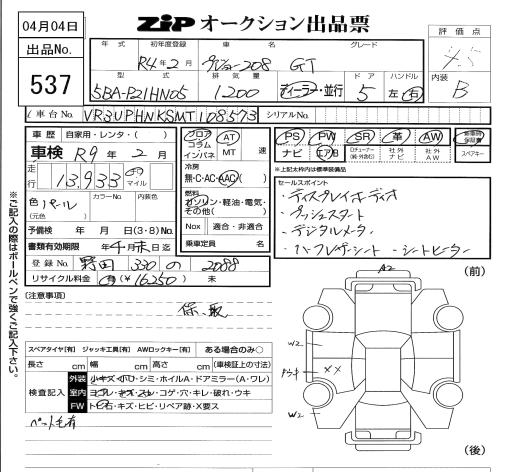 04月04日
ZIP オークション出品票
出品No.
537
年式 初年度登録 車名 グレード
R4年2月 プジョー208 GT
型式 排気量 ドア ハンドル
5BA-P21HN05 1200 ディーラー・並行 5 左 右
評価点
内装
B
車台No. VR3UPHNKSMT108573 シリアルNo.
車歴 自家用・レンタ・( )
車検 R9年2月
走行 13,933 マイル
色 パール カラーNo. 内装色
(元色)
予備検 年 月 日(3・8)No.
書類有効期限 年4月末日迄
登録No. 野田 330 の 2088
リサイクル料金 有(¥16250) 未
フロア コラム インパネ
AT MT 速
冷房
無・C・AC・AAC
燃料
ガソリン・軽油・電気・その他( )
Nox 適合・非適合
乗車定員 名
PS PW SR 革 AW
ナビ エアB Dチューナー(純・社外含む) 社外ナビ 社外AW
新車時保証書
スペアキー
※上記太枠内は標準装備品
セールスポイント
・ディスプレイオーディオ
・プッシュスタート
・デジタルメータ
・ハーフレザーシート ・シートヒーター
[注意事項]
保、取
スペアタイヤ[有] ジャッキ工具[有] AWロックキー[有] ある場合のみ〇
長さ cm 幅 cm 高さ cm (車検証上の寸法)
検査記入
外装 小キズ・小凹・シミ・ホイルA・ドアミラー(A・ワレ)
室内 ヨゴレ・キズ・スレ・コゲ・穴・キレ・破れ・ウキ
FW トビ石・キズ・ヒビ・リペア跡・X要ス
ペット毛有
※ご記入の際はボールペンで強くご記入下さい。
A2
(前)
W2
××
W2
(後)